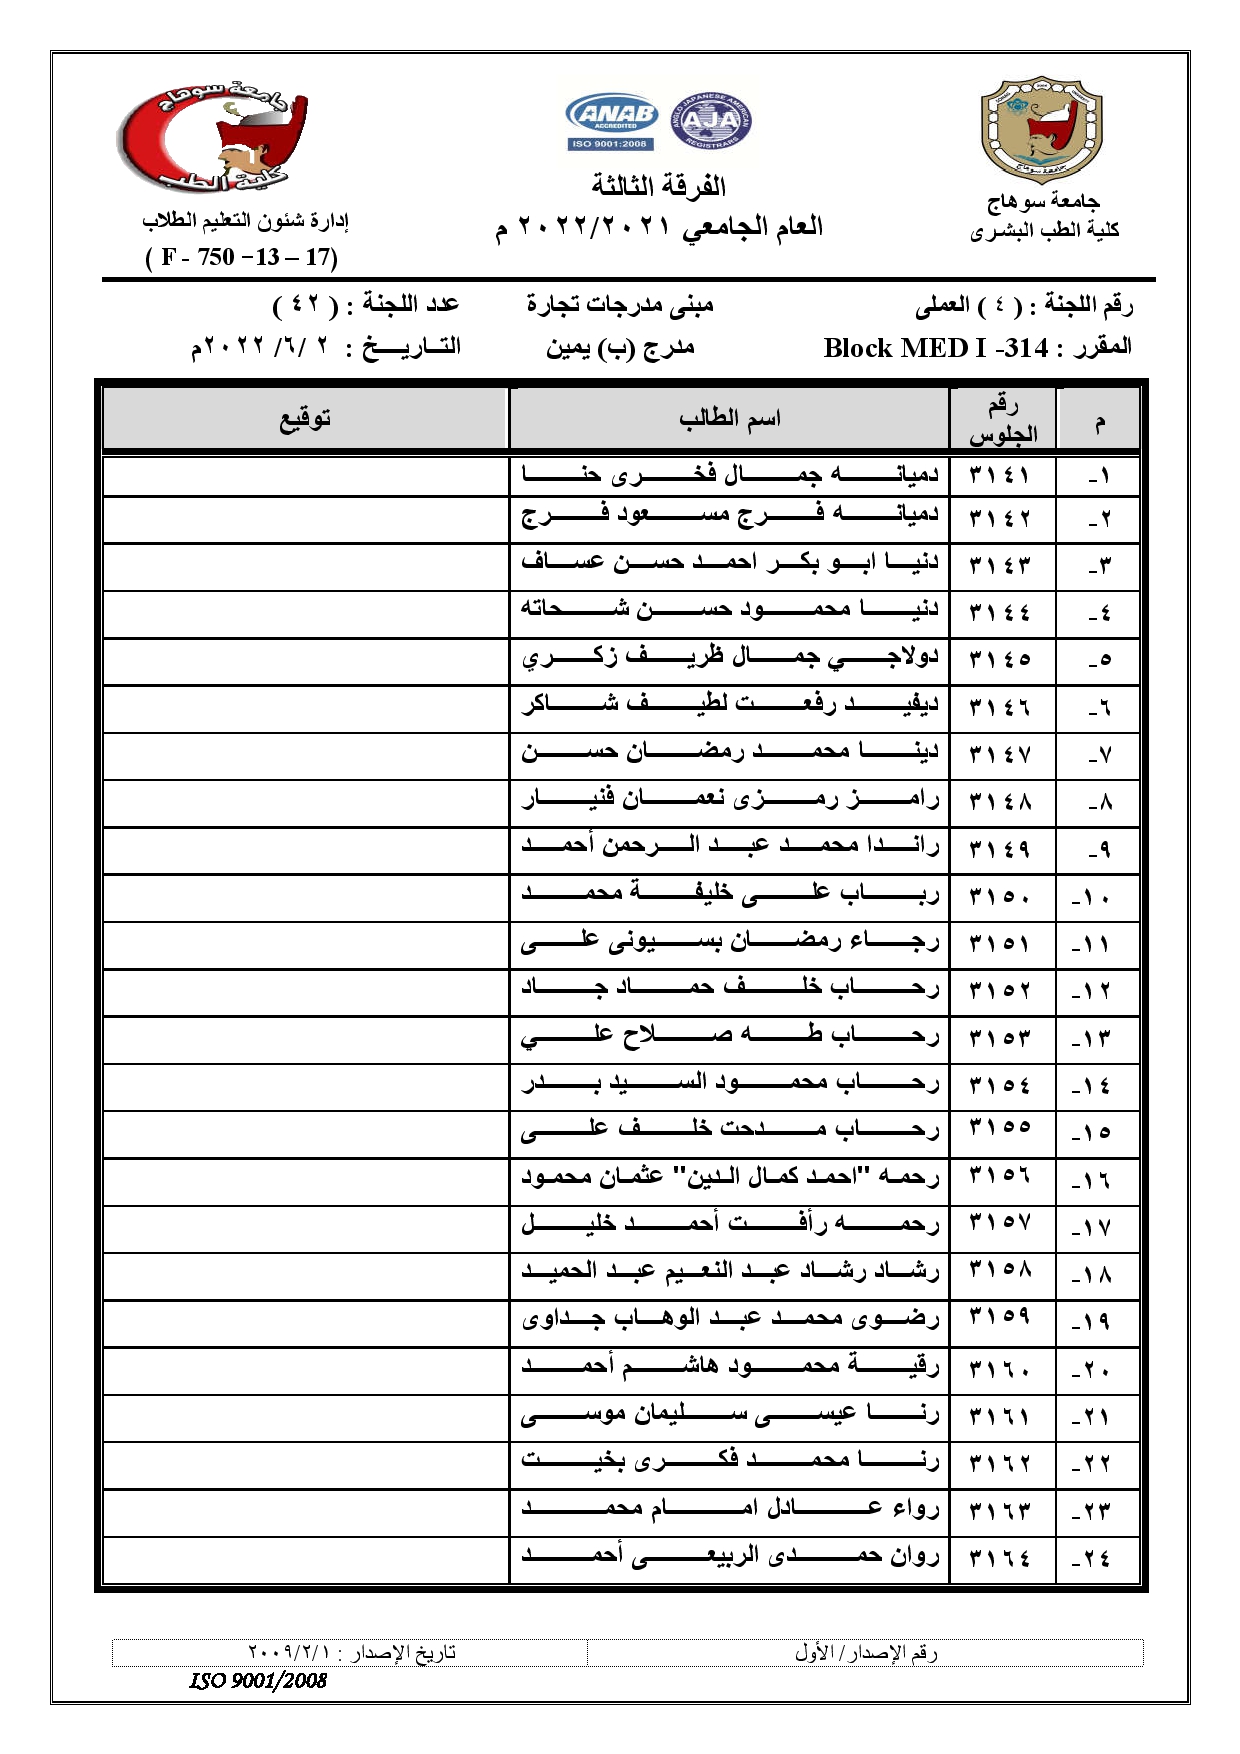 جامعة سوهاج
كلية الطب
ANAB
ACCREDITED
ISO 9001:2008
ANGLO JAPANESE AMERICAN
AJA
REGISTRARS
جامعة سوهاج
الفرقة الثالثة
جامعة سوهاج
العام الجامعي ٢٠٢٢/٢٠٢١ م
كلية الطب البشرى
إدارة شئون التعليم الطلاب
( F - 750 -13 – 17)
رقم اللجنة : ( ٤ ) العملى مبنى مدرجات تجارة عدد اللجنة : ( ٤٢ )
المقرر : Block MED I -314 مدرج (ب) يمين التـاريـــخ : ٢ /٦/ ٢٠٢٢م
م رقم الجلوس اسم الطالب توقيع
١- ٣١٤١ دميانه جمال فخرى حنا
٢- ٣١٤٢ دميانه فرج مسعود فرج
٣- ٣١٤٣ دنيا ابو بكر احمد حسن عساف
٤- ٣١٤٤ دنيا محمود حسن شحاته
٥- ٣١٤٥ دولاجي جمال ظريف زكري
٦- ٣١٤٦ ديفيد رفعت لطيف شاكر
٧- ٣١٤٧ دينا محمد رمضان حسن
٨- ٣١٤٨ رامز رمزى نعمان فنيار
٩- ٣١٤٩ راندا محمد عبد الرحمن أحمد
١٠- ٣١٥٠ رباب على خليفة محمد
١١- ٣١٥١ رجاء رمضان بسيونى على
١٢- ٣١٥٢ رحاب خلف حماد جاد
١٣- ٣١٥٣ رحاب طه صلاح علي
١٤- ٣١٥٤ رحاب محمود السيد بدر
١٥- ٣١٥٥ رحاب مدحت خلف على
١٦- ٣١٥٦ رحمه "احمد كمال الدين" عثمان محمود
١٧- ٣١٥٧ رحمه رأفت أحمد خليل
١٨- ٣١٥٨ رشاد رشاد عبد النعيم عبد الحميد
١٩- ٣١٥٩ رضوى محمد عبد الوهاب جداوى
٢٠- ٣١٦٠ رقية محمود هاشم أحمد
٢١- ٣١٦١ رنا عيسى سليمان موسى
٢٢- ٣١٦٢ رنا محمد فكرى بخيت
٢٣- ٣١٦٣ رواء عادل امام محمد
٢٤- ٣١٦٤ روان حمدى الربيعى أحمد
رقم الإصدار/ الأول تاريخ الإصدار : ٢٠٠٩/٢/١
ISO 9001/2008